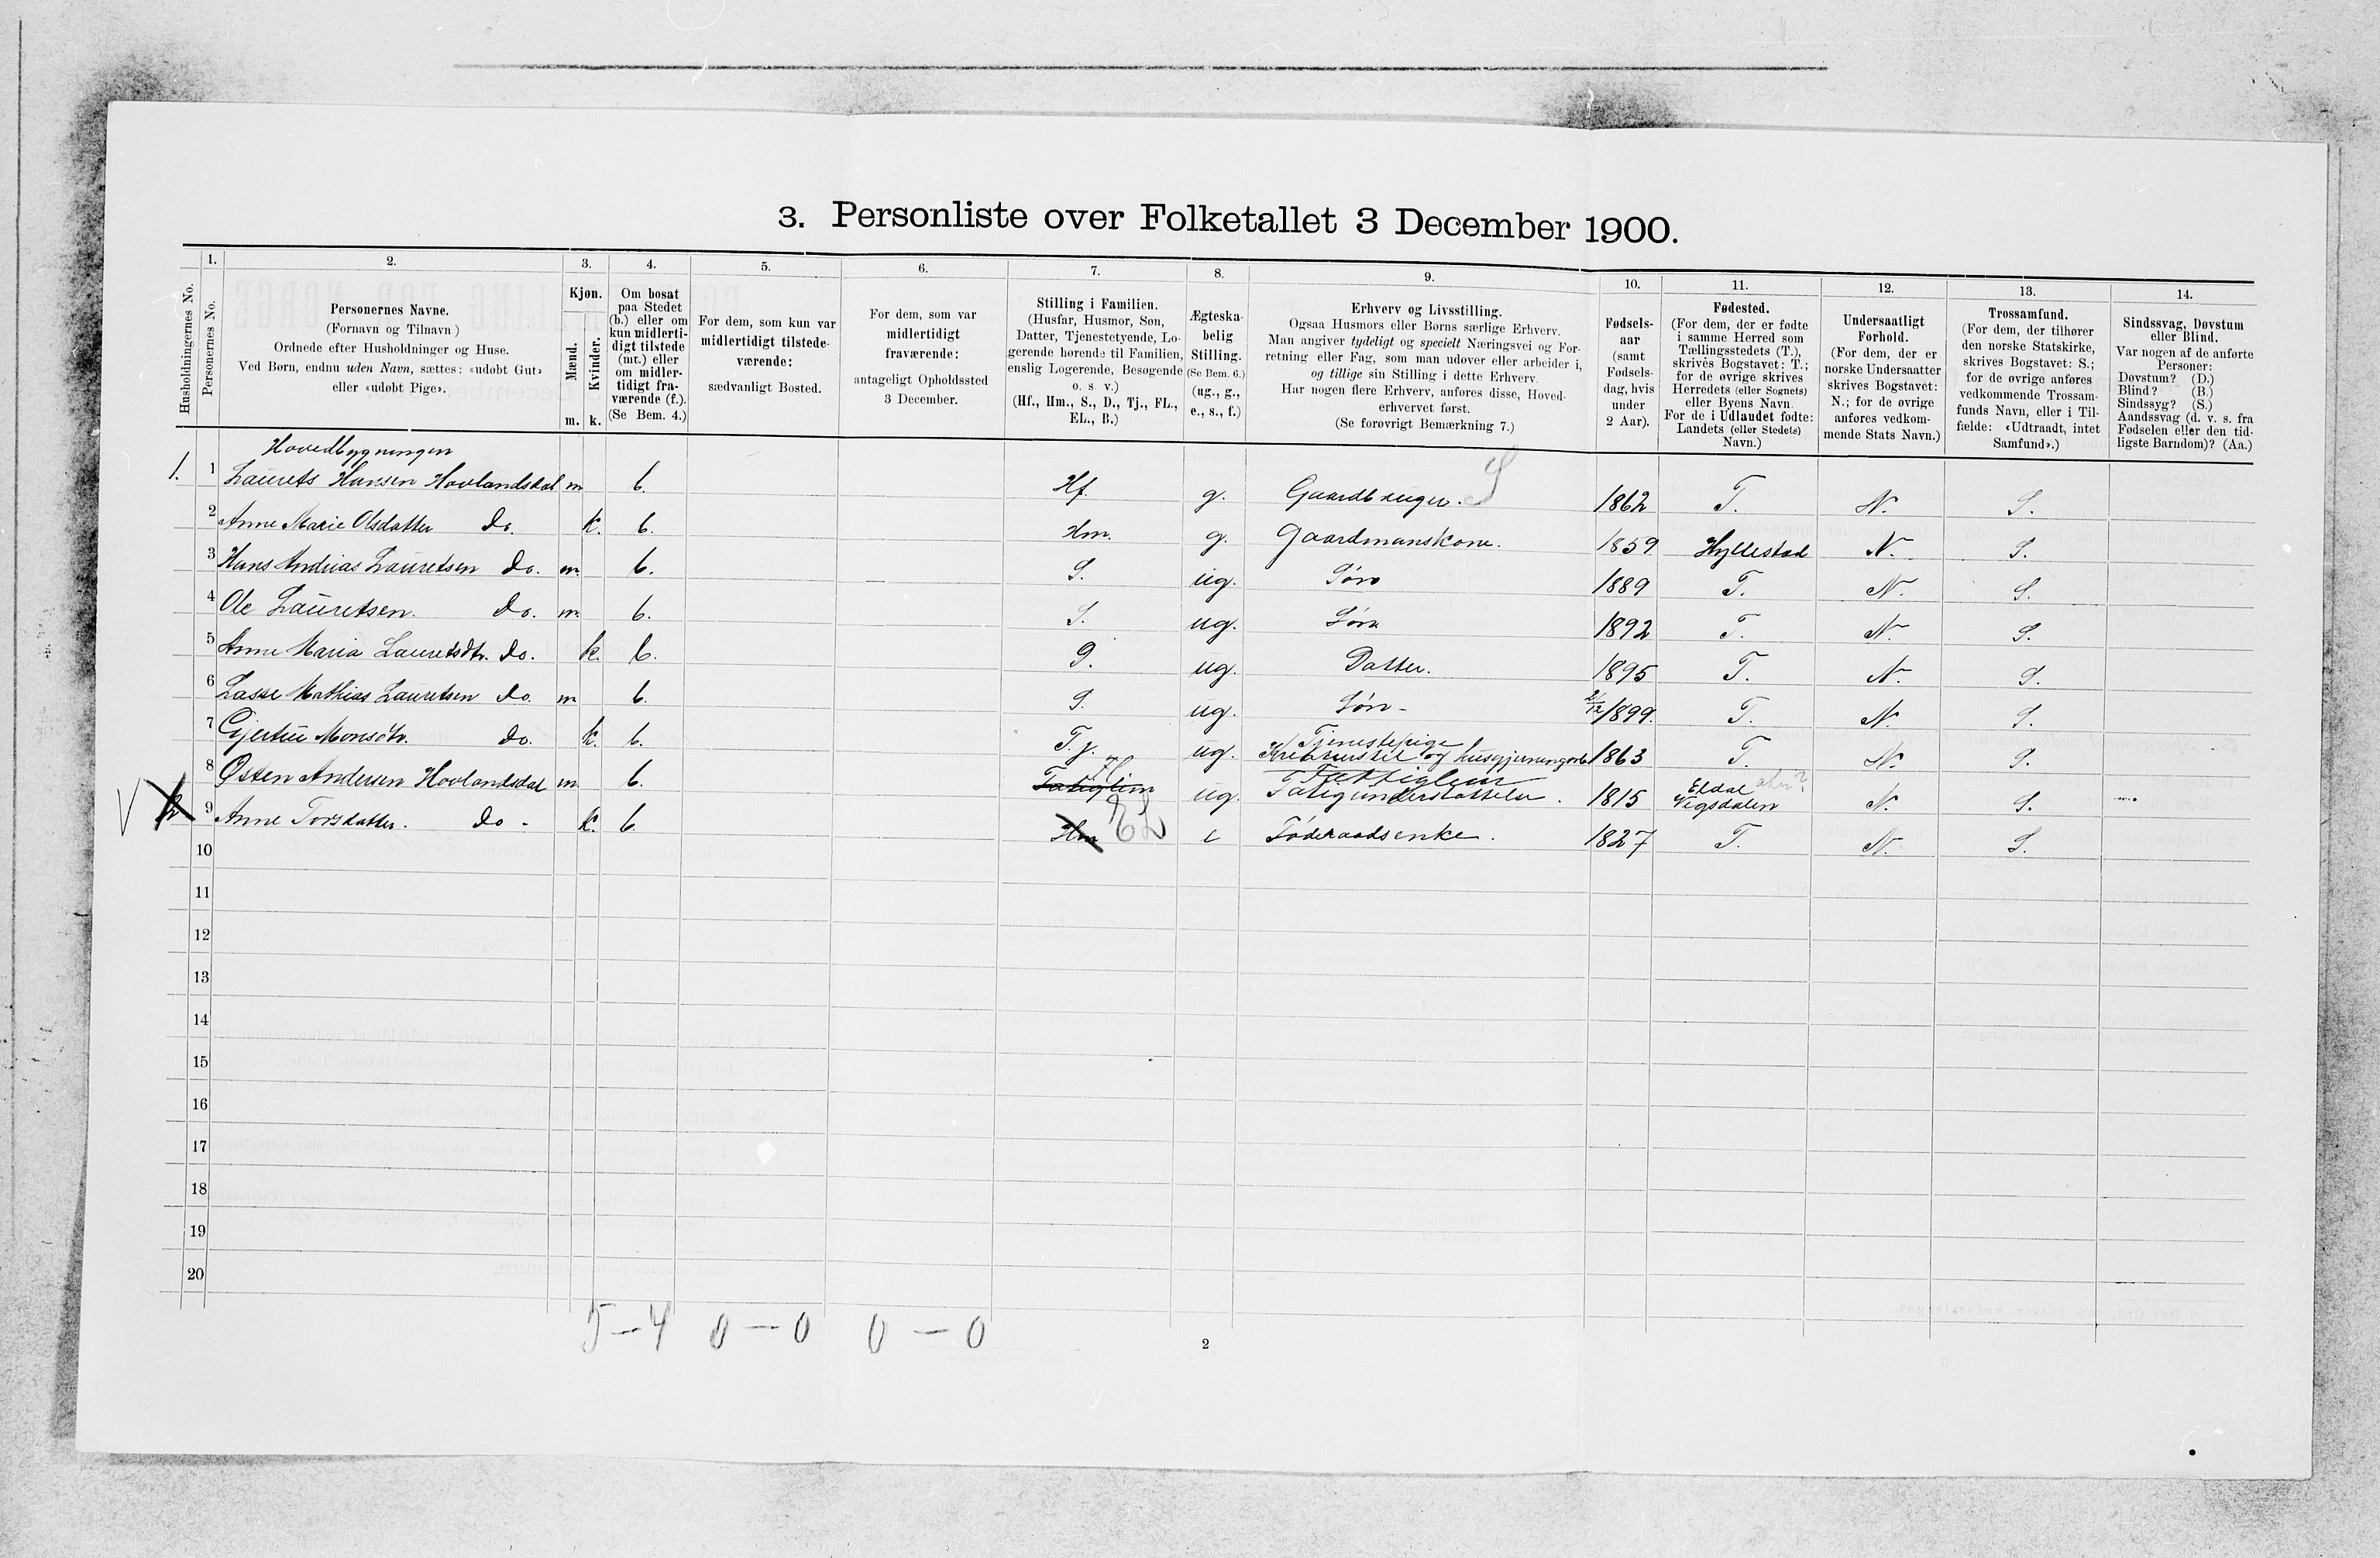 3. Personliste over Folketallet 3 December 1900.
1. 2. 3. 4. 5. 6. 7. 8. 9. 10. 11. 12. 13. 14.
Husholdningernes No.
Personernes No.
Personernes Navne.
(Fornavn og Tilnavn)
Ordnede efter Husholdninger og Huse.
Ved Børn, endnu uden Navn, sættes: «udøbt Gut»
eller «udøbt Pige».
Kjøn.
Mænd.
Kvinder.
m. k.
Om bosat
paa Stedet
(b.) eller om
kun midlerti-
digt tilstede
(mt.) eller
om midler-
tidigt fra-
værende (f.).
(Se Bem. 4.)
For dem, som kun var
midlertidigt tilstede-
værende:
sædvanligt Bosted.
For dem, som var
midlertidigt
fraværende:
antageligt Opholdssted
3 December.
Stilling i Familien.
(Husfar, Husmor, Søn,
Datter, Tjenestetyende, Lo-
gerende hørende til Familien,
enslig Logerende, Besøgende
o. s. v.)
(Hf., Hm., S., D., Tj., FL.,
EL., B.)
Ægteska-
belig
Stilling.
(Se Bem. 6.)
(ug., g.,
e., s., f.)
Erhverv og Livsstilling.
Ogsaa Husmors eller Børns særlige Erhverv.
Man angiver tydeligt og specielt Næringsvei og For-
retning eller Fag, som man udøver eller arbeider i,
og tillige sin Stilling i dette Erhverv.
Har nogen flere Erhverv, anføres disse, Hoved-
erhvervet først.
(Se forøvrigt Bemærkning 7.)
Fødsels-
aar
(samt
Fødsels-
dag, hvis
under
2 Aar).
Fødested.
(For dem, der er fødte
i samme Herred som
Tællingsstedets (T.),
skrives Bogstavet: T.;
for de øvrige skrives
Herredets (eller Sognets)
eller Byens Navn
For de i Udlandet fødte:
Landets (eller Stedets)
Navn.)
Undersaatligt
Forhold.
(For dem, der er
norske Undersaatter
skrives Bogstavet:
N.; for de øvrige
anføres vedkom-
mende Stats Navn.)
Trossamfund.
(For dem, der tilhører
den norske Statskirke,
skrives Bogstavet: S.;
for de øvrige anføres
vedkommende Trossam-
funds Navn, eller i Til-
fælde: «Udtraadt, intet
Samfund».)
Sindssvag, Døvstum
eller Blind.
Var nogen af de anførte
Personer:
Døvstum? (D.)
Blind? (B.)
Sindssyg? (S.)
Aandssvag (d. v. s. fra
Fødselen eller den tid-
ligste Barndom)? (Aa.)
Hovedbygningen
1. 1 Laurets Hansen Hovlandsdal m b. Hf. g. Gaardbruger. S 1862 T. N. S.
2 Anne Marie Olsdatter Do. k. b. Hm. g. Gaardmanskone. 1859 Hyllestad N. S.
3 Hans Andreas Lauretsen Do. m. b. S. ug. Søn 1889 T. N. S.
4 Ole Lauretsen. Do. m. b. S. ug. Søn 1892 T. N. S.
5 Anne Maria Lauretsdtr. do. k. b. D. ug. Datter. 1895 T. N. S.
6 Lasse Mathias Lauretsen do. m b. S. ug. Søn - 2/12 1899. T. N. S.
7 Gjertrue Monsdtr. do. k. b. T.j. ug. Tjenestepige
Kreaturstel og husgjerningarb 1863 T. N. S.
8 Østen Andersen Hovlandsdal m b. Fatiglem fl ug. Fattiglem
Fatigunderstøttelse. 1815 Eldal
Vigsdalen N. S.
V 2 9 Anne Torsdatter. do - k. b. Hm EL e Føderaadsenke. 1827 T. N. S.
10
11
12
13
14
15
16
17
18
19
20
5 – 4 0 – 0 0 – 0
2